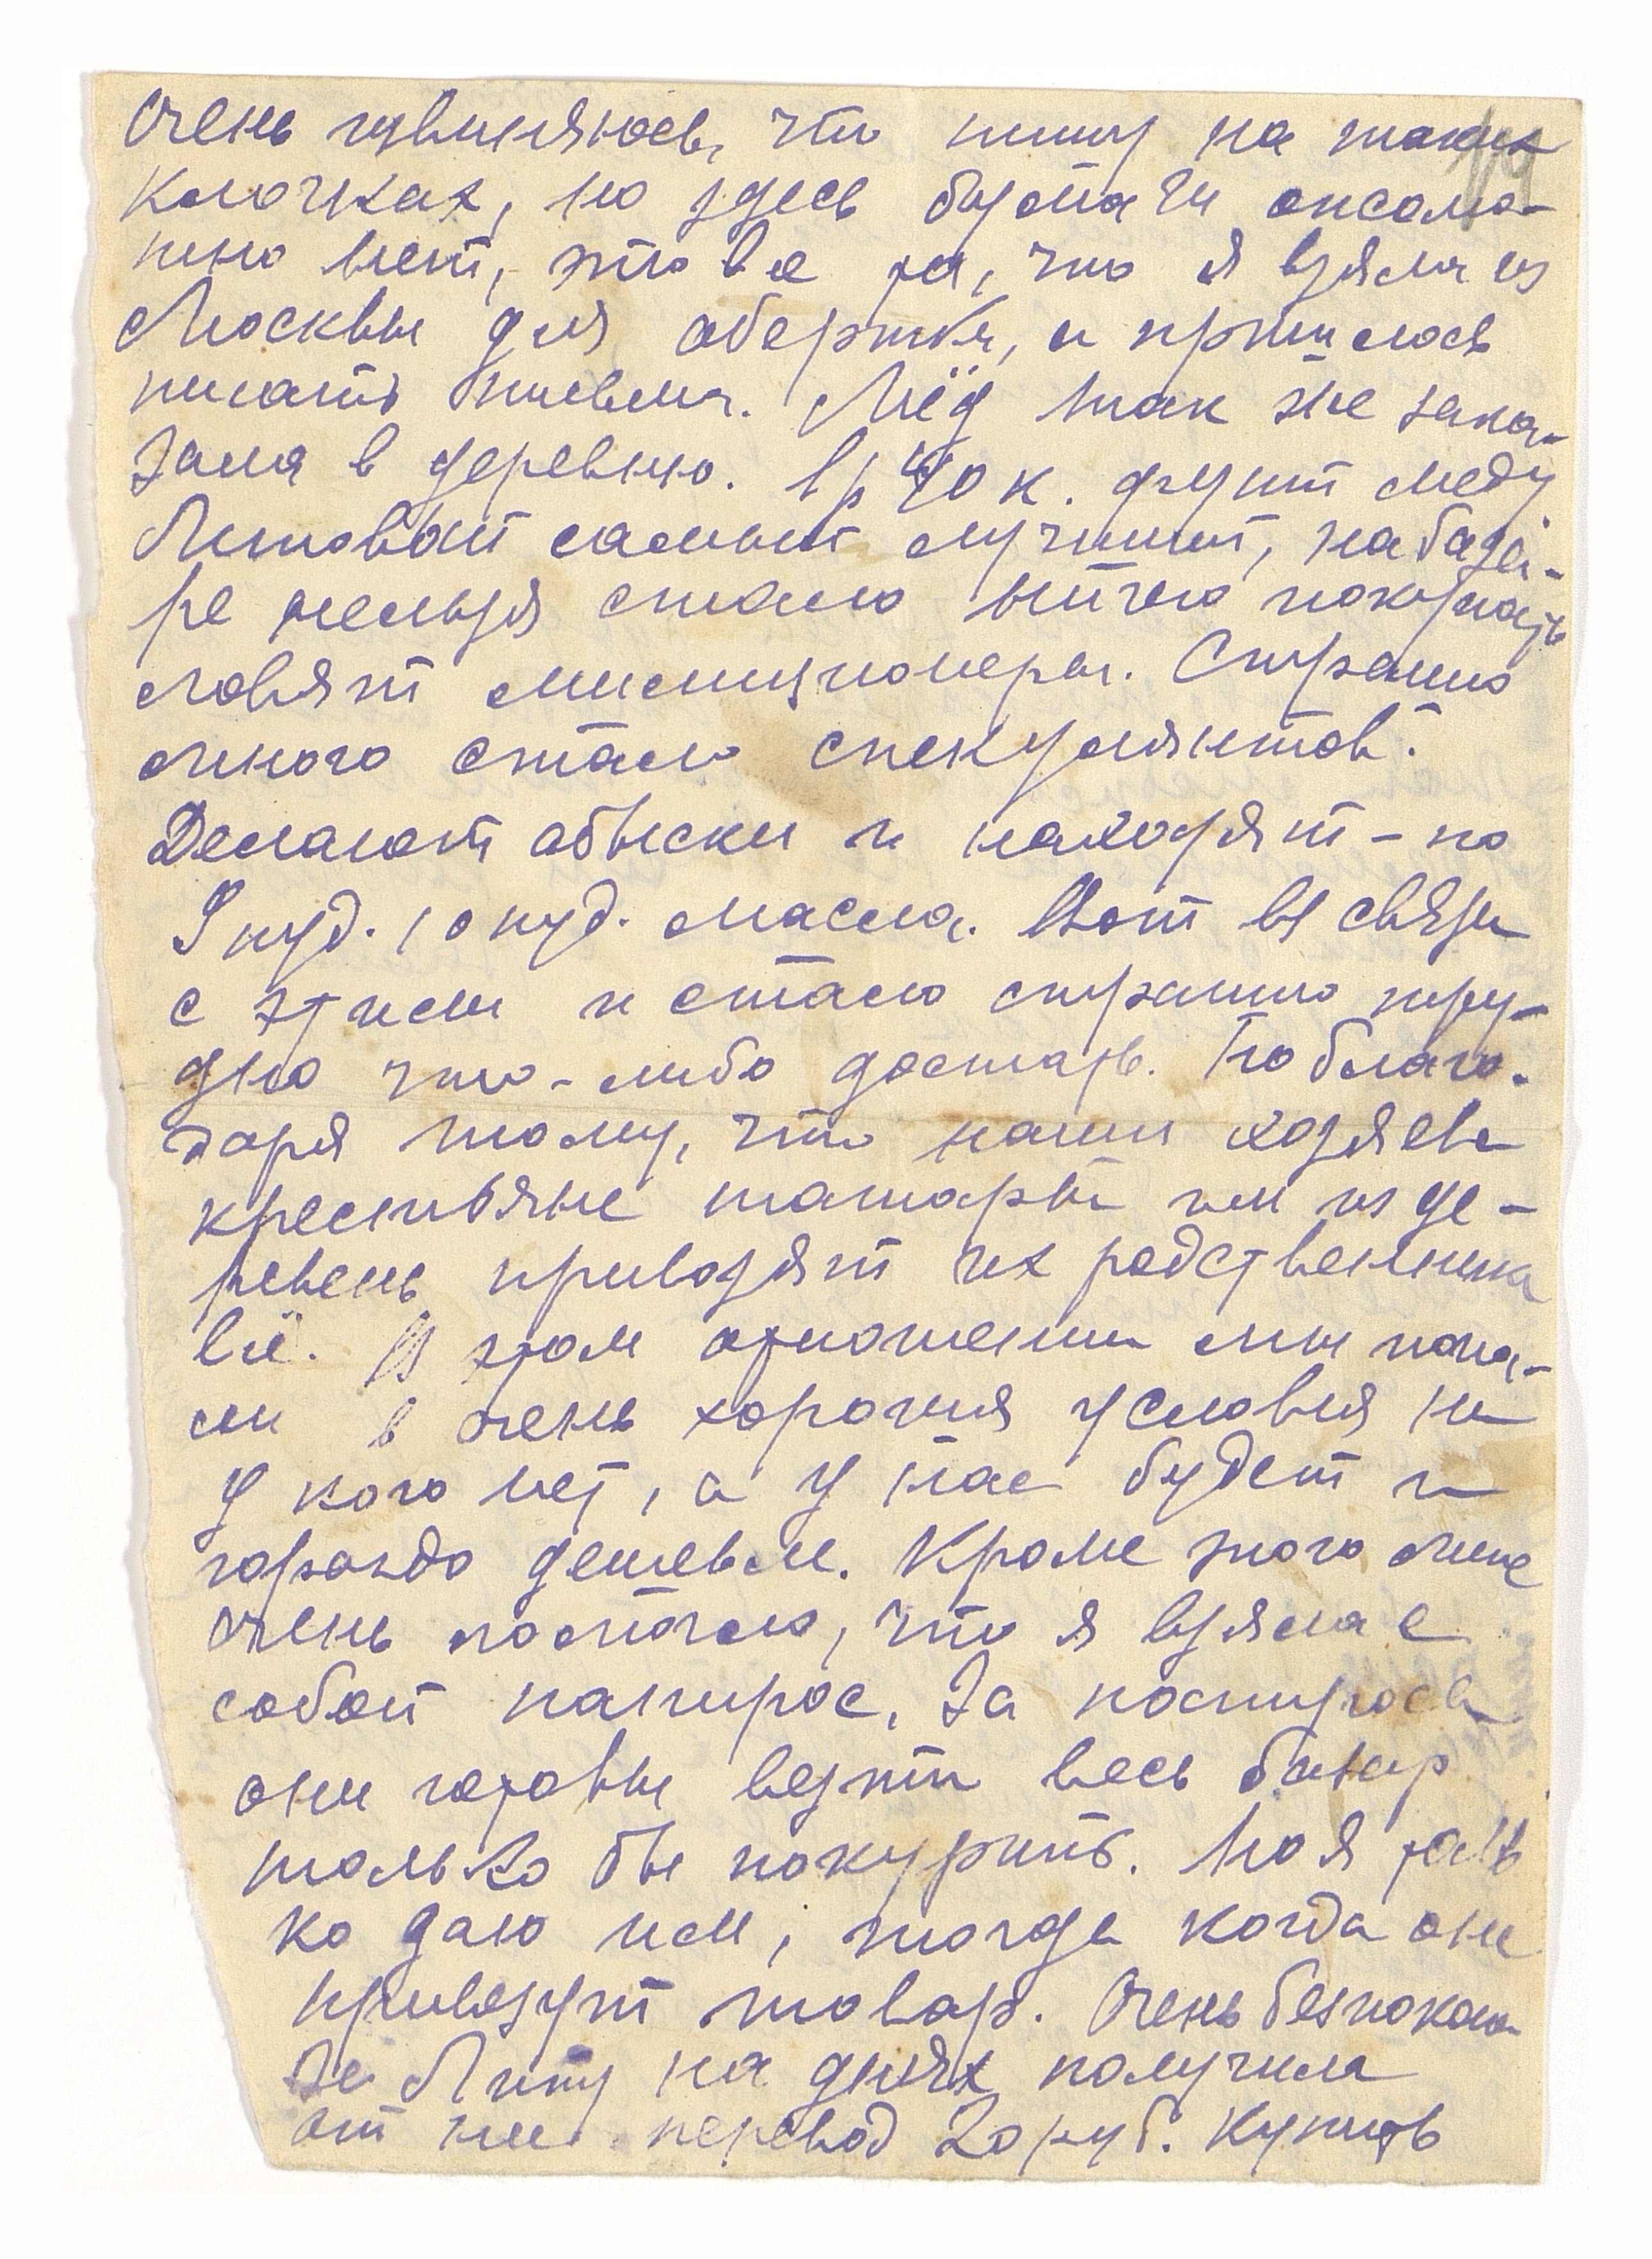 Очень извиняюсь, что пишу на таких
клочках, но здесь бумаги оконча-
тельно нет, это всё та, что я взяла из
Москвы для обертки, и пришлось
писать письма. Мёд так же зака-
зала в деревню. 1р 40 к. фунт меду
Липовый самый лучший, на база-
ре нельзя стало ничего покупать
ловят милиционеры. Страшно
много стало спекулянтов.
Делают обыски и находят – по
9 пуд. 10 пуд. масла. Вот в связи
с этим и стало страшно тру-
дно что-либо достать. Но благо-
даря тому, что наши хозяева
крестьяне татары им из де-
ревень привозят их родственники
всё. В этом отношении мы попа-
ли в очень хорошия условия ни
у кого нет, а у нас будет и
гораздо дешевле. Кроме этого мне
очень помогло, что я взяла с
собой папирос. За
они готовы везти весь базар
только бы покурить. Но я толь
ко даю им, тогда когда они
привезут товар. Очень безпокою
за Литу на днях получила
от нее перевод 20 руб. Купить